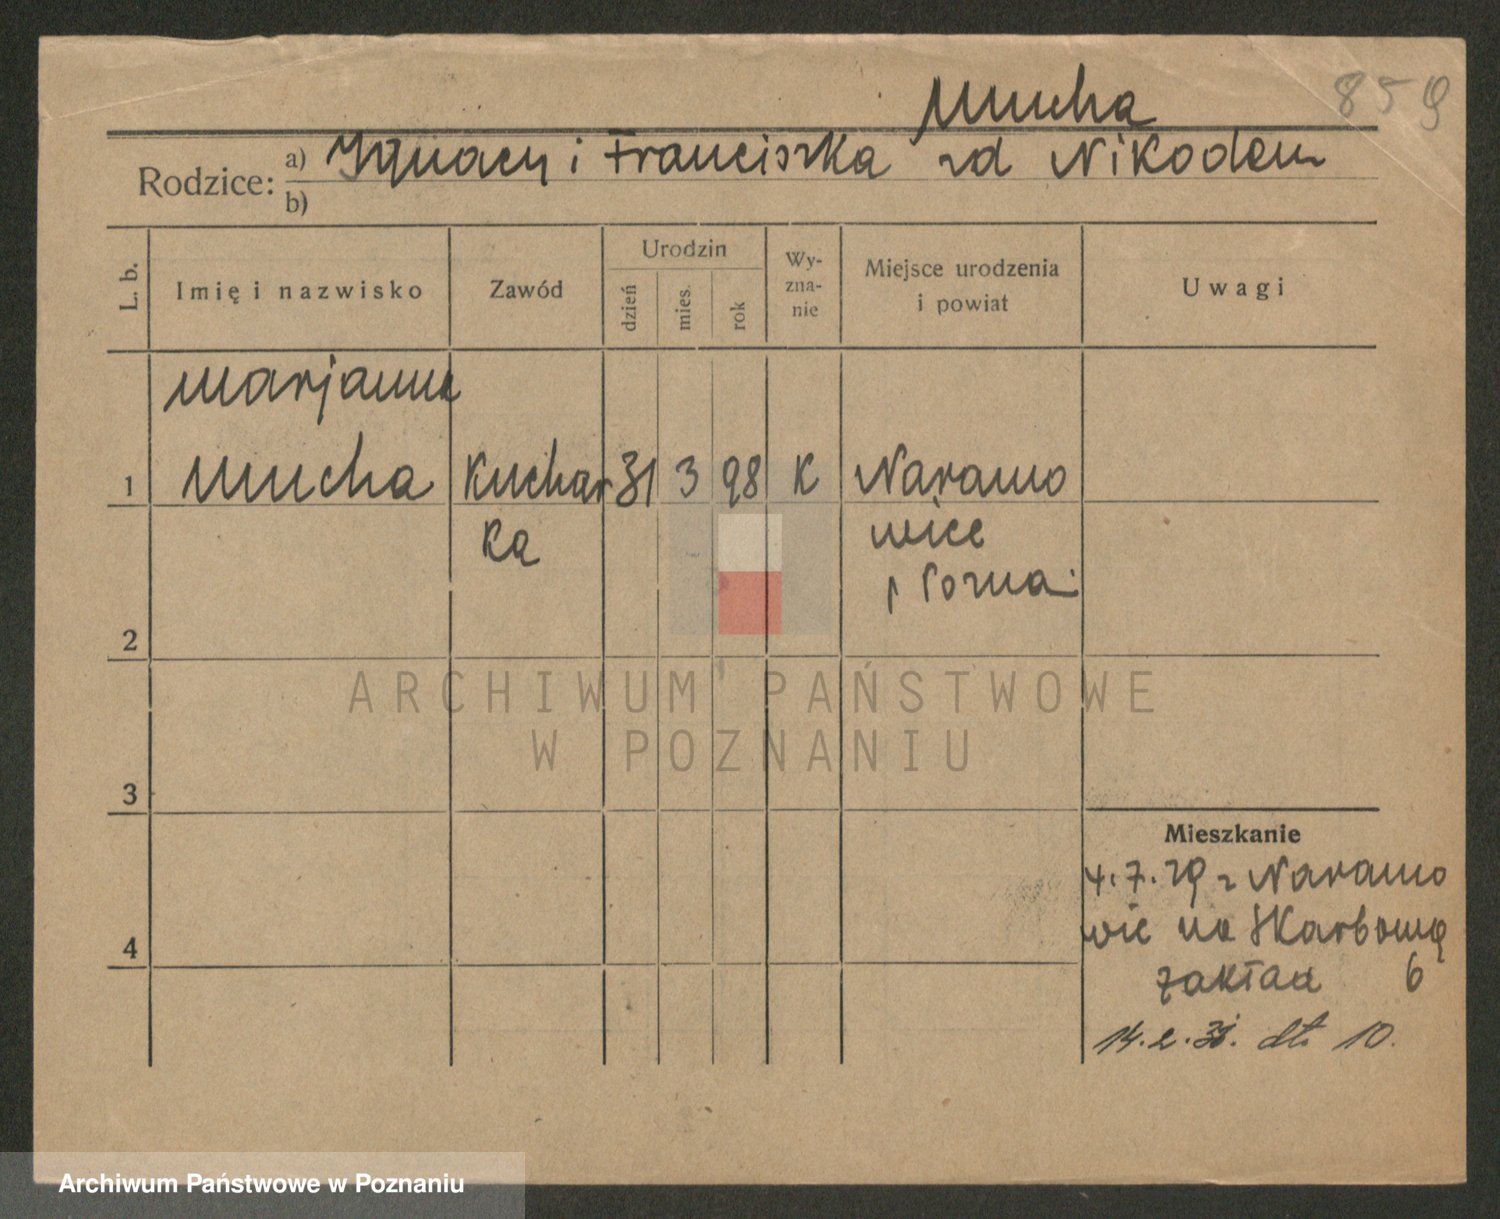 Mucha 859
Rodzice: a) Ignacy i Franciszka zd Nikodem
b)
L. b. Imię i nazwisko Zawód Urodzin dzień mies. rok Wy-zna-nie Miejsce urodzenia i powiat Uwagi
Marjanna
1 Mucha Kuchar 31 3 98 K Naramo
ka wice
p Pozna.
2
ARCHIWUM PAŃSTWOWE
W POZNANIU
3
Mieszkanie
4.7.29 z Naramo
4 wic na Skarbową
zakład 6
14.2.31. dt. 10.
Archiwum Państwowe w Poznaniu